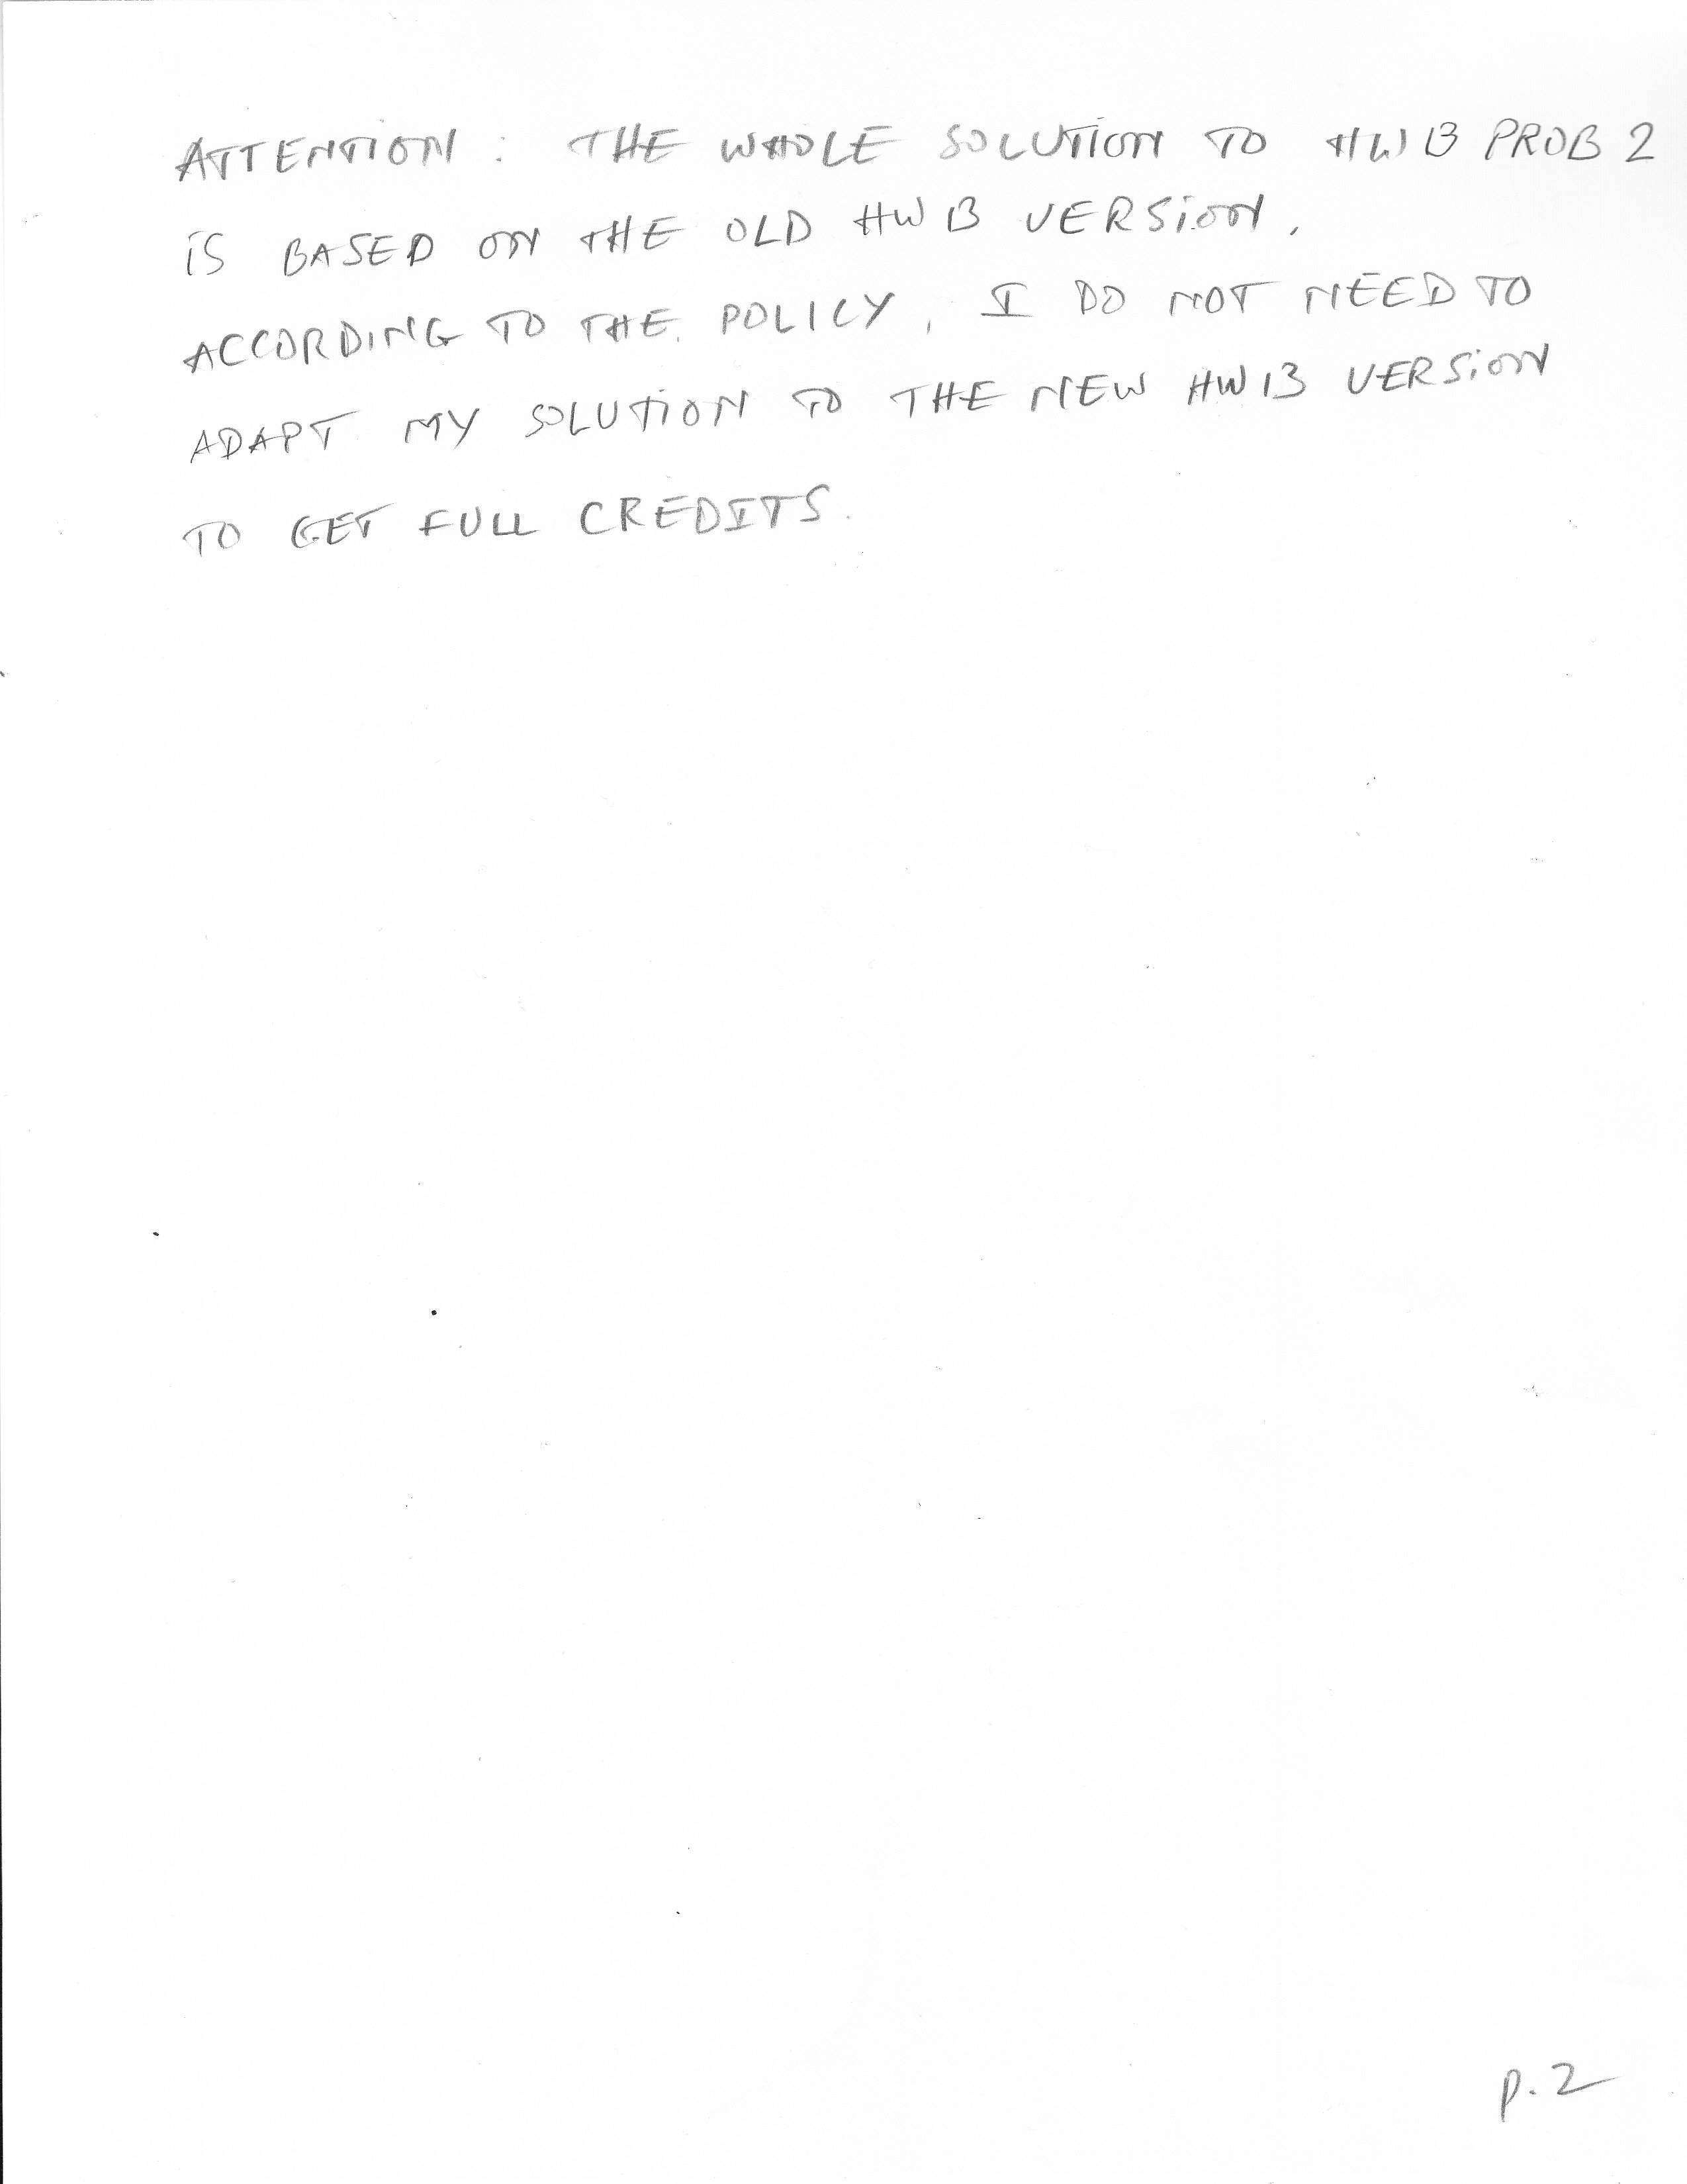 ATTENTION : THE WHOLE SOLUTION TO HW 13 PROB 2
IS BASED ON THE OLD HW 13 VERSION,
ACCORDING TO THE POLICY, I DO NOT NEED TO
ADAPT MY SOLUTION TO THE NEW HW 13 VERSION
TO GET FULL CREDITS.
p.2